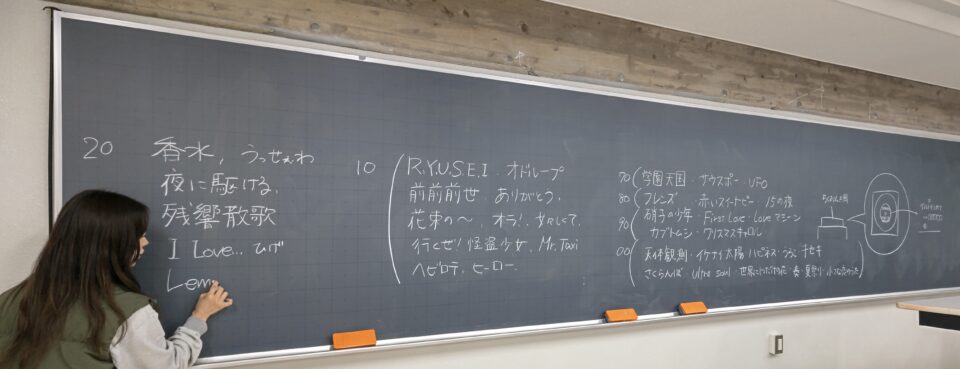 20 香水, うっせぇわ
夜に駆ける,
残響散歌
I Love... ひげ
Lem
10 R.Y.U.S.E.I ・ オドループ
前前前世 ・ ありがとう,
花束の〜 オラ!, 女々しくて,
行くぜ!怪盗少女, Mr.Taxi
ヘビロテ, ヒーロー,
70 学園天国 ・ サウスポー ・ UFO
80 フレンズ ・ 赤いスイートピー ・ 15の夜
90 硝子の少年 ・ First Love ・ Loveマシーン
カブトムシ ・ クリスマスキャロル
00 天体観測 ・ イケナイ太陽 ハピネス ・ キセキ
さくらんぼ ・ ultra soul ・ 世界に1つだけの花 ・ 春 ・ 夏祭り ・